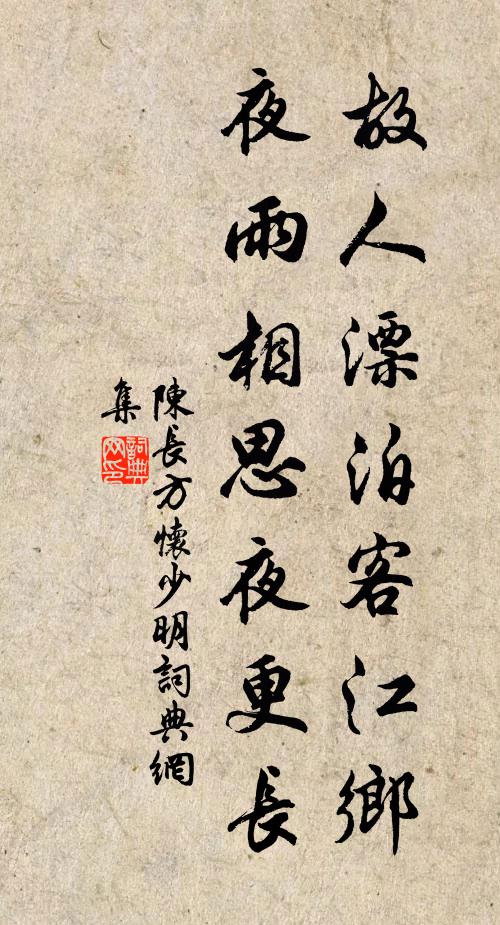 故人漂泊客江鄉
夜雨相思夜更長
陳長方懷少明詞典網
集
詞典
网印